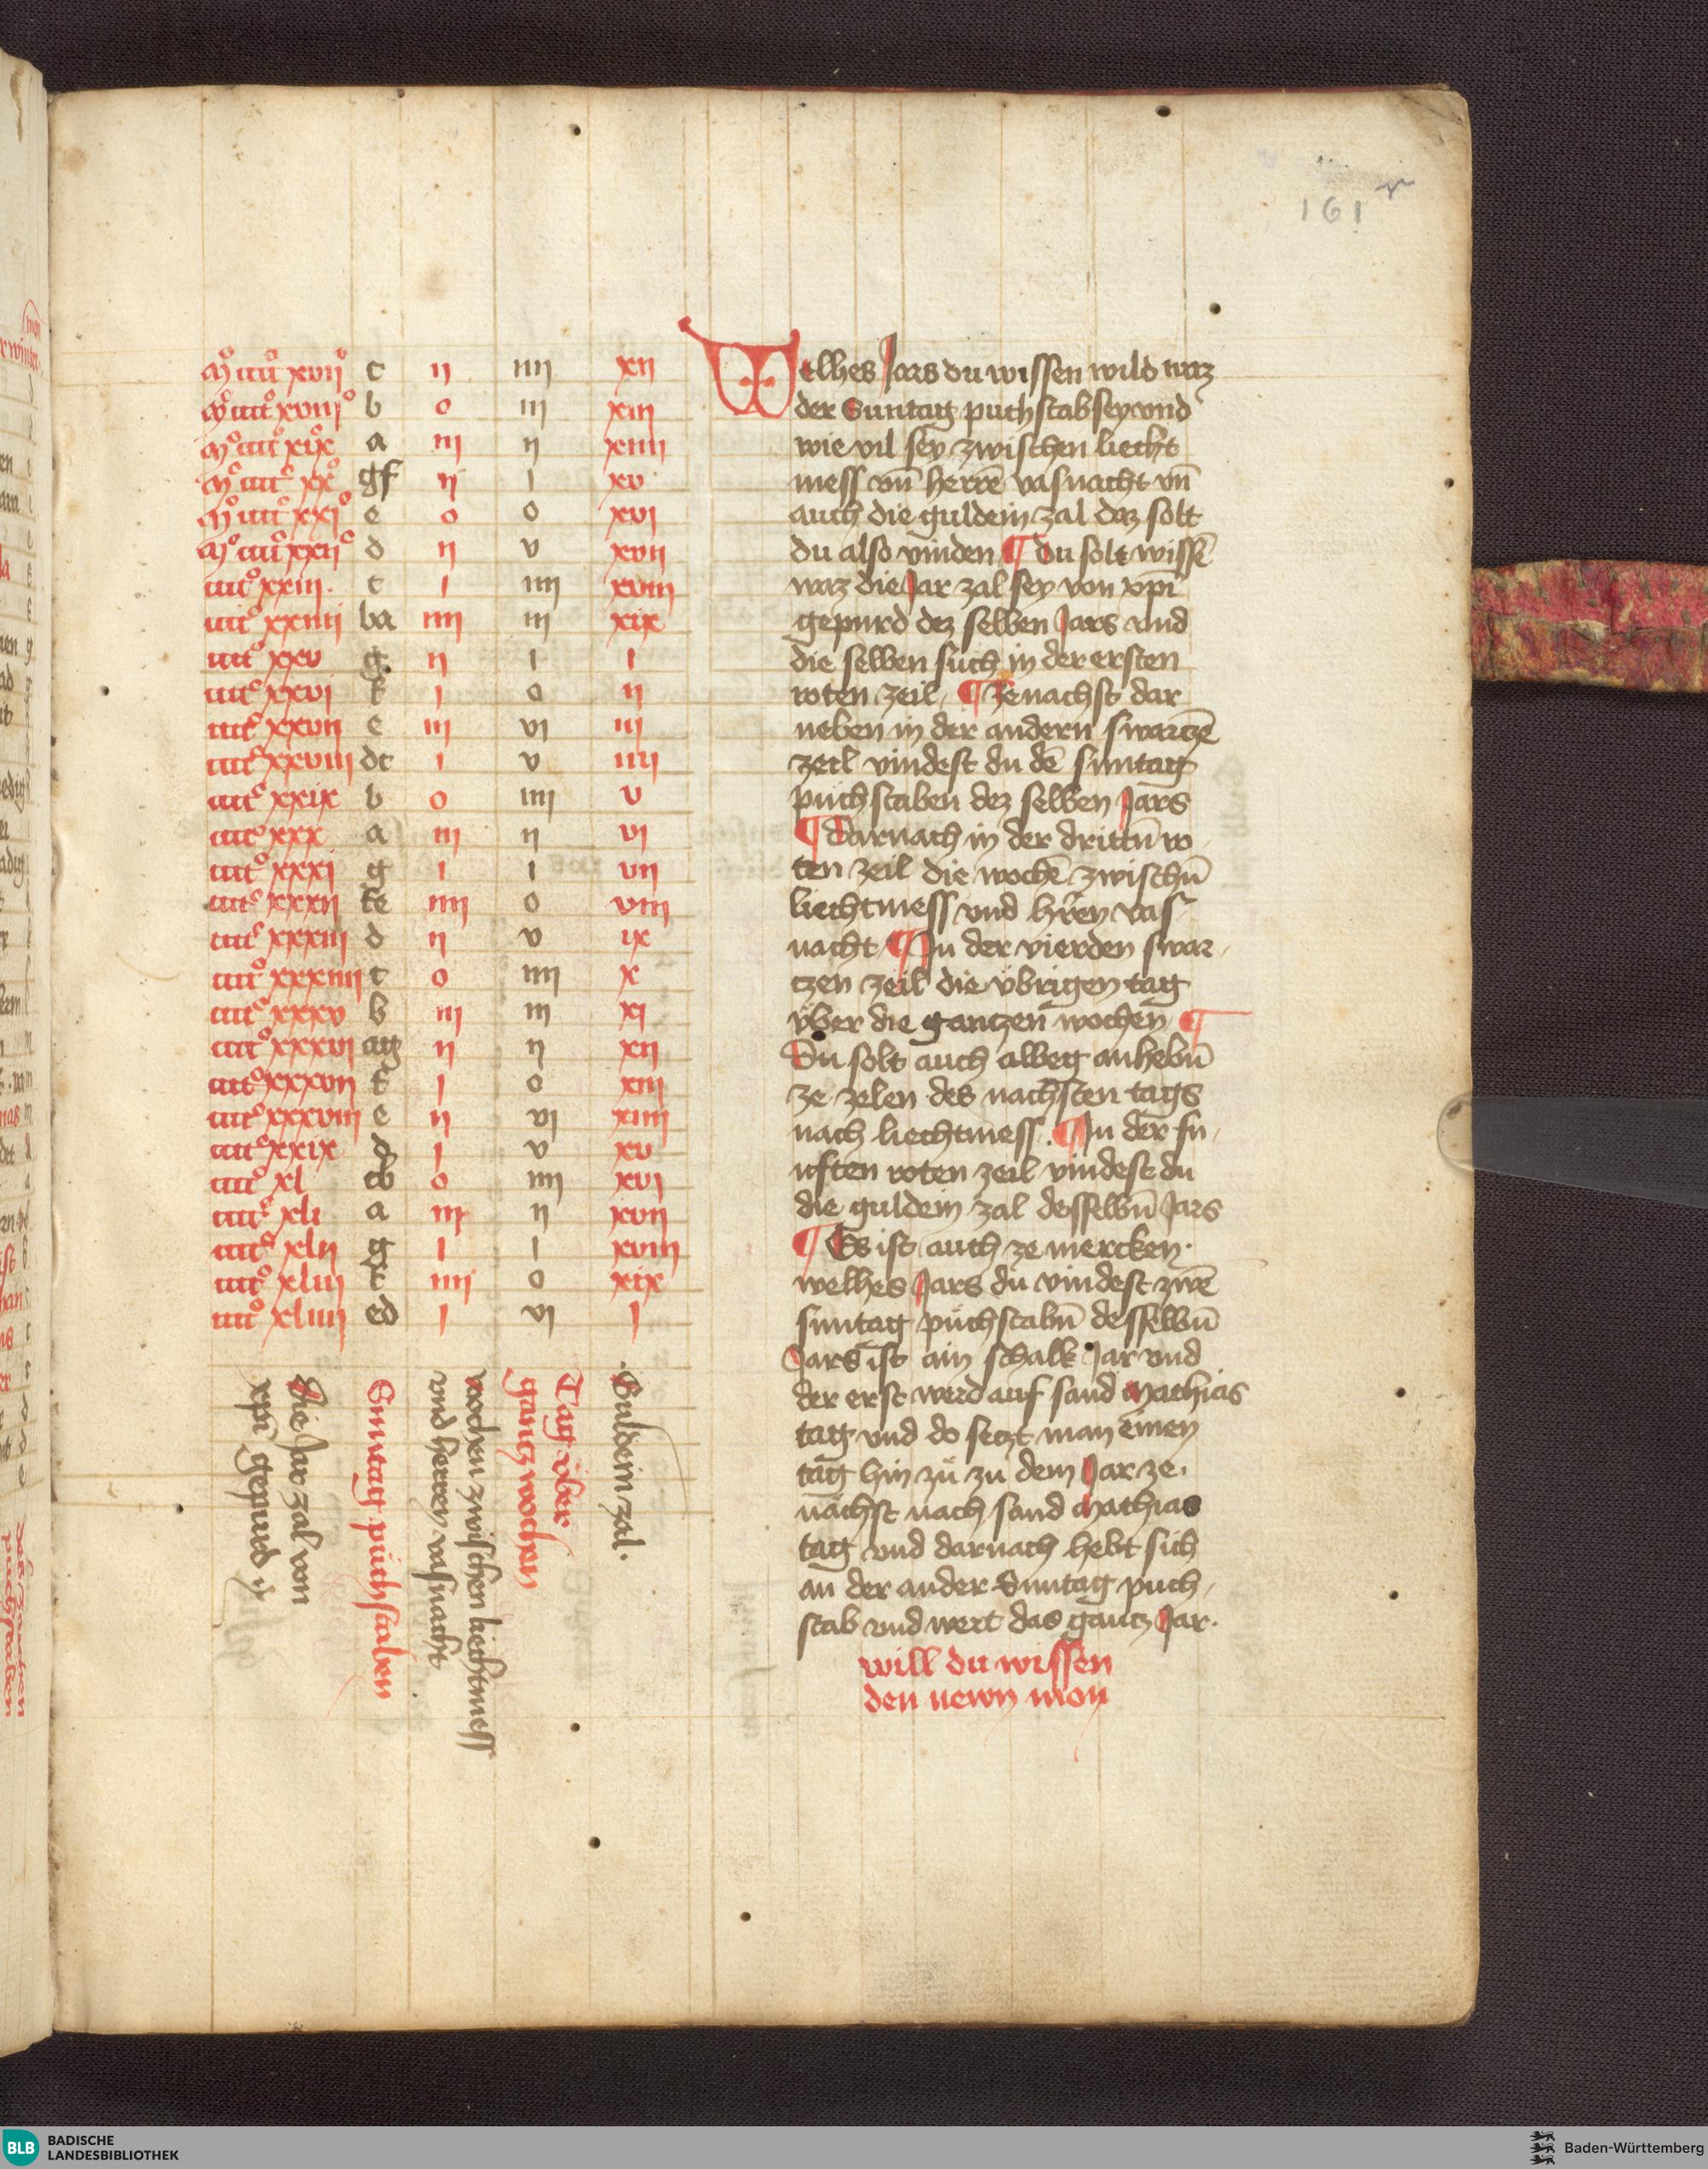 161 r
Mº iiiiº xvijº c ij iiij xij
Mº iiiiº xviijº b o iij xiij
Mº iiiiº xix a iij ij xiiij
Mº iiiiº xxº gf ij i xv
Mº iiiiº xxiº e o o xvi
Mº iiiiº xxijº d ij v xvij
iiiiº xxiij. c i iiij xviij
iiiiº xxiiij ba iiij iij xix
iiiiº xxv g ij i i
iiiiº xxvi f i o ij
iiiiº xxvij e iij vi iij
iiiiº xxviij dc i v iiij
iiiiº xxix b o iiij v
iiiiº xxx a iij ij vi
iiiiº xxxi g i i vij
iiiiº xxxij fe iiij o viij
iiiiº xxxiij d ij v ix
iiiiº xxxiiij c o iiij x
iiiiº xxxv b iij iij xi
iiiiº xxxvi ag ij ij xij
iiiiº xxxvij f i o xiij
iiiiº xxxviij e ij vi xiiij
iiiiº xxix d i v xv
iiiiº xl cb o iiij xvi
iiiiº xli a iij ij xvij
iiiiº xlij g i i xviij
iiiiº xliij f iiij o xix
iiiiº xliiij ed i vi i
Die Jar zal von
xpi gepurd
Suntag puchstaben
wochen zwischen liechtmess
vnd herren vasnacht
Tag vber
gantz wochen
Guldein zal.
Welhes Jars du wissen wild waz
der Suntag puchstab sey vnd
wie vil sey zwischen liecht
mess vn̄ herrē vasnacht vn̄
auch die guldein zal daz solt
du also vinden ¶ Du solt wissē
waz die Jar zal sey von xp̄i
gepurd dez selben Jars vnd
die selben such in der ersten
roten zeil, ¶ Ze nachst dar
neben in der andern swarczē
zeil vindest du dē suntag
puchstaben dez selben Jars
¶ Darnach in der drittn̄ ro
ten zeil die wochē zwischn̄
liechtmess vnd hr̄en vas
nacht ¶ In der vierden swar
tzen zeil die vbrigen tag
vber die gantzen wochen ¶
Du solt auch albeg anhebn̄
ze zelen des nachsten tags
nach liechtmess. ¶ In der fu
nften roten zeil vindest du
die guldein zal desselbn̄ Jars
¶ Es ist auch ze mercken.
welhes Jars du vindest zwē
suntag puchstabn̄ desselbn̄
Jars ist ain schalk Jar vnd
der erst werd auf sand Mathias
tag vnd do seczt man einen
tag hin zu zu dem Jar ze
nachst nach sand Mathias
tag vnd darnach hebt sich
an der ander Suntag puch
stab vnd wert das gantz Jar.
will du wissen
den newn mon
BLB BADISCHE
LANDESBIBLIOTHEK
Baden-Württemberg